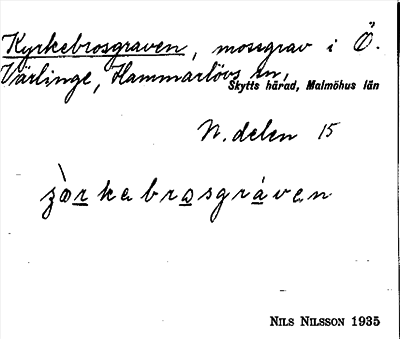 Kyrkebrosgraven, mossgrav i Ö.
Värlinge, Hammarlövs sn,
Skytts härad, Malmöhus län
N. delen 15
NILS NILSSON 1935